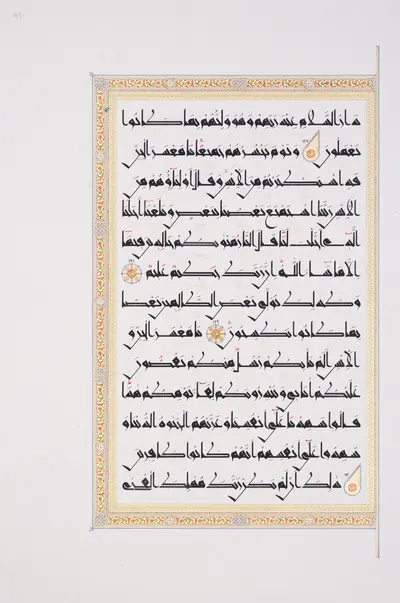 دار السلام عند ربهم وهو وليهم بما كانوا
يعملون ويوم يحشرهم جميعا يمعشر الجن
قد استكثرتم من الانس وقال اولياؤهم من
الانس ربنا استمتع بعضنا ببعض وبلغنا اجلنا
الذي اجلت لنا قال النار مثويكم خالدين فيها
الا ما شاء الله ان ربك حكيم عليم
وكذلك نولي بعض الظالمين بعضا
بما كانوا يكسبون يامعشر الجن و
الانس الم ياتكم رسل منكم يقصون
عليكم اياتي وينذرونكم لقاء يومكم هذا
قالوا شهدنا على انفسنا وغرتهم الحيوة الدنيا و
شهدوا على انفسهم انهم كانوا كافرين
ذلك ان لم يكن ربك مهلك القرى